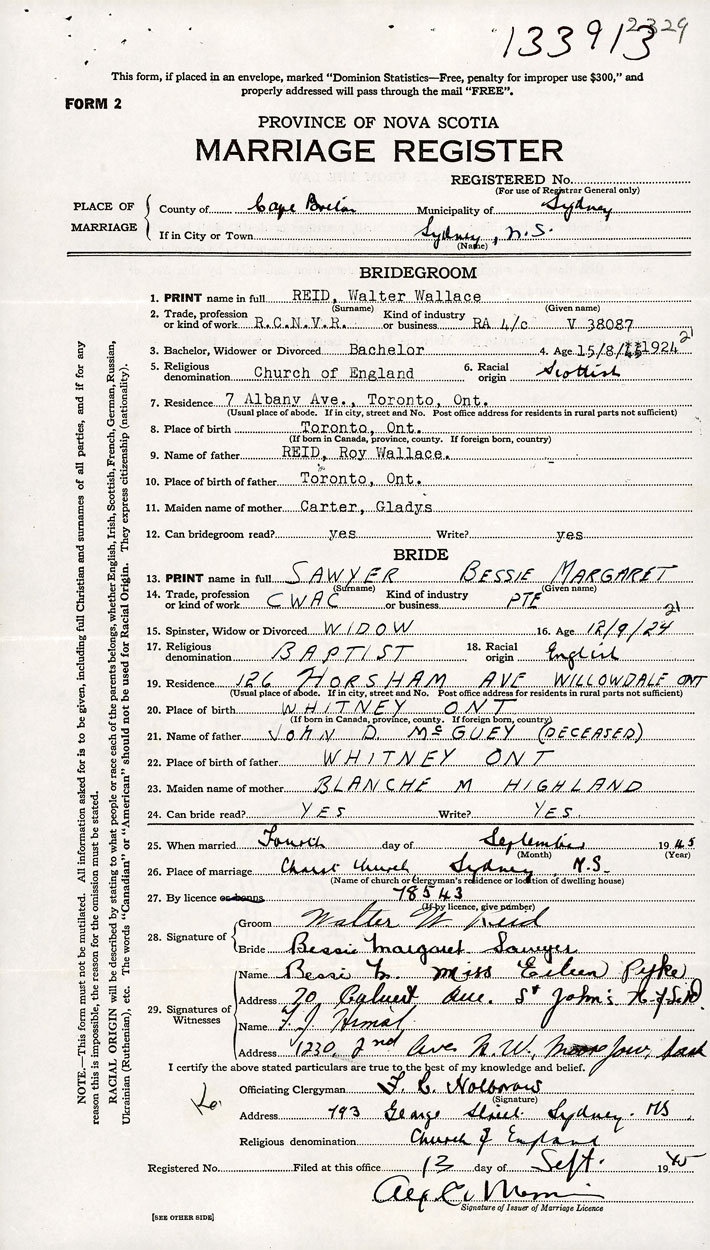 133913 2329
This form, if placed in an envelope, marked "Dominion Statistics—Free, penalty for improper use $300," and
properly addressed will pass through the mail "FREE".
FORM 2
PROVINCE OF NOVA SCOTIA
MARRIAGE REGISTER
REGISTERED No.
(For use of Registrar General only)
PLACE OF MARRIAGE
County of Cape Breton Municipality of Sydney
If in City or Town Sydney, N.S.
(Name)
BRIDEGROOM
1. PRINT name in full REID, Walter Wallace
(Surname) (Given name)
2. Trade, profession or kind of work R.C.N.V.R. Kind of industry or business RA 4/c V 38087
3. Bachelor, Widower or Divorced Bachelor 4. Age 15/8/1924 21
5. Religious denomination Church of England 6. Racial origin Scottish
7. Residence 7 Albany Ave., Toronto, Ont.
(Usual place of abode. If in city, street and No. Post office address for residents in rural parts not sufficient)
8. Place of birth Toronto, Ont.
(If born in Canada, province, county. If foreign born, country)
9. Name of father REID, Roy Wallace.
10. Place of birth of father Toronto, Ont.
11. Maiden name of mother Carter, Gladys
12. Can bridegroom read? yes Write? yes
BRIDE
13. PRINT name in full SAWYER BESSIE MARGARET
(Surname) (Given name)
14. Trade, profession or kind of work CWAC Kind of industry or business PTE
15. Spinster, Widow or Divorced WIDOW 16. Age 12/9/24 21
17. Religious denomination BAPTIST 18. Racial origin English
19. Residence 126 HORSHAM AVE WILLOWDALE ONT
(Usual place of abode. If in city, street and No. Post office address for residents in rural parts not sufficient)
20. Place of birth WHITNEY ONT
(If born in Canada, province, county. If foreign born, country)
21. Name of father JOHN D. McGUEY (DECEASED)
22. Place of birth of father WHITNEY ONT
23. Maiden name of mother BLANCHE M HIGHLAND
24. Can bride read? YES Write? YES.
25. When married Fourth day of September 1945
(Month) (Year)
26. Place of marriage Christ Church, Sydney, N.S.
(Name of church or clergyman's residence or location of dwelling house)
27. By licence or banns 78543
(If by licence, give number)
28. Signature of
Groom Walter W Reid
Bride Bessie Margaret Sawyer
29. Signatures of Witnesses
Name Miss Eileen Pyke
Address 20 Calvert Ave. St John's Nfld.
Name
Address 1230, 2nd Ave N.W., Moose Jaw, Sask
I certify the above stated particulars are true to the best of my knowledge and belief.
Officiating Clergyman
(Signature)
Address 793 George Street Sydney. NS
Religious denomination Church of England
Registered No. Filed at this office 12 day of Sept. 1945
Signature of Issuer of Marriage Licence
[SEE OTHER SIDE]
NOTE.—This form must not be mutilated. All information asked for is to be given, including full Christian and surnames of all parties, and if for any
reason this is impossible, the reason for the omission must be stated.
RACIAL ORIGIN will be described by stating to what people or race each of the parents belongs, whether English, Irish, Scottish, French, German, Russian,
Ukrainian (Ruthenian), etc. The words "Canadian" or "American" should not be used for Racial Origin. They express citizenship (nationality).